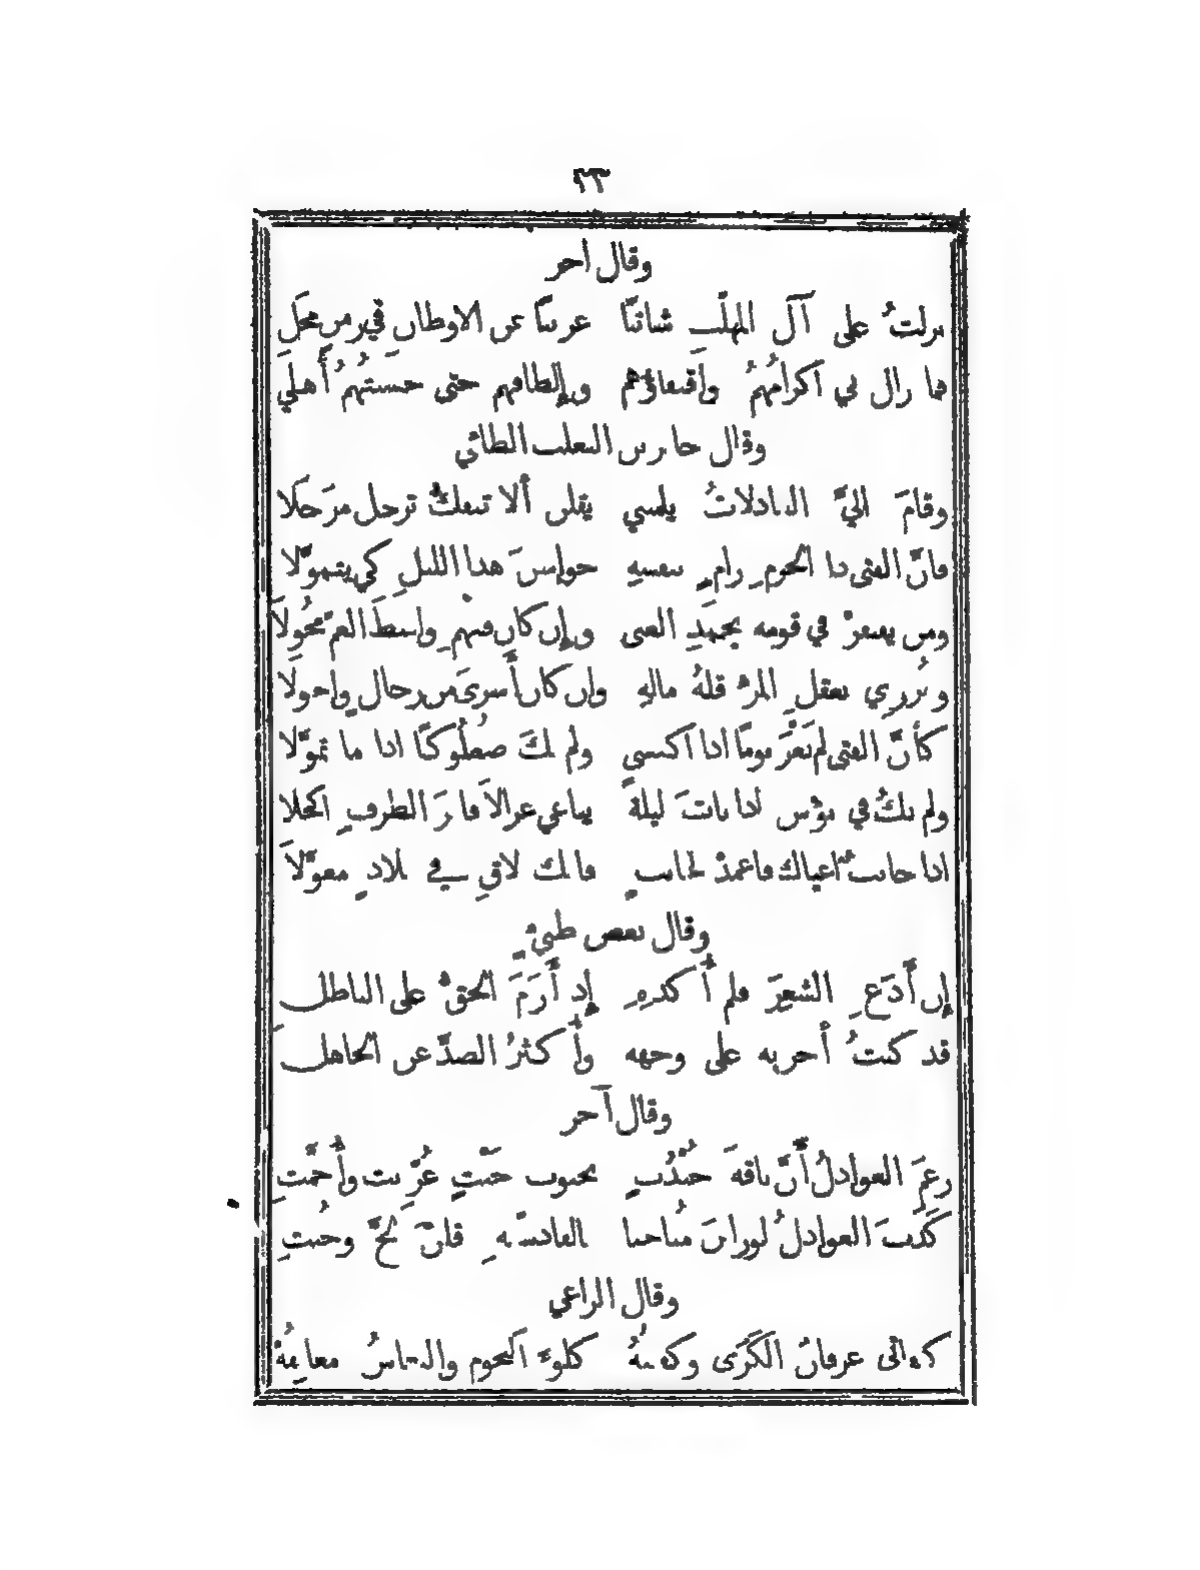 ٢٣
وقال آخر
نزلتُ على آل المهلّب شاتيًا غريبًا عن الاوطان في زمن محَلِ
فما زال بي اكرامُهُمُ واقتفاؤهم وإلطافهم حتى حسَبتُهُمُ أَهلي
وقال جابر بن الثعلب الطائي
وقامَ اليَّ العاذلاتُ يلمنني يقلن ألا تنفكُّ ترحل مرَحلَا
فانَّ الفتى ذا الحزمِ رامٍ بنفسهِ حواسَ هذا الليل كي يتموّلَا
ومن يفتقرْ في قومه يحمَدِ الغنى وإن كان فيهم واسطَ العمّ مُخوِلَا
ويُزري بعقل المرءِ قلةُ مالهِ وإن كان أَسرى من رجال وأحولَا
كأنَّ الفتى لم يَعْرَ يومًا اذا اكتسى ولم يكَ صُعلُوكًا اذا ما تموّلَا
ولم يكُ في بؤس اذا باتَ ليلةً يناغي غزالاً فاترَ الطرفِ اكحلا
اذا جانبٌ اعياك فاعمدْ لجانبٍ فانك لاقٍ في بلادٍ معوّلَا
وقال بعض طيئٍ
إن أَدَعِ الشعرَ فلم أُكدهِ إذ أَزَمَ الحقُّ على الباطل
قد كنتُ أُجريه على وجهه وأُكثرُ الصدَّ عن الجاهل
وقال آخر
زعمَ العواذلُ أَنَّ ناقةَ جُندُبٍ بجنوب خَبْتٍ عُرّيت وأُجمَّتِ
كذبَ العواذلُ لو رأينَ مُناخنا بالقادسيّةِ قلنَ لجَّ وجُنّتِ
وقال الراعي
كفاني عرفانُ الكَرَى وكفيتُهُ كلوءَ النجوم والنعاسُ معانِقُهْ